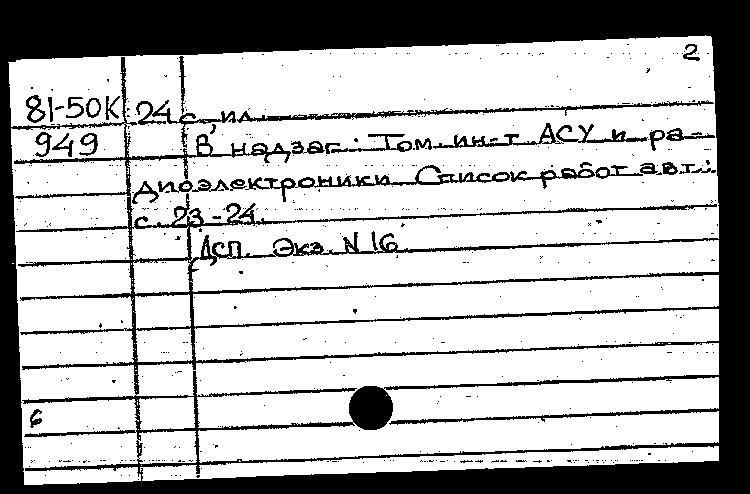 2
81-50К 24 с, ил.
949 В надзаг.: Том. ин-т АСУ и ра-
диоэлектроники. Список работ авт.:
с. 23-24.
Дсп. Экз. N 16.
6